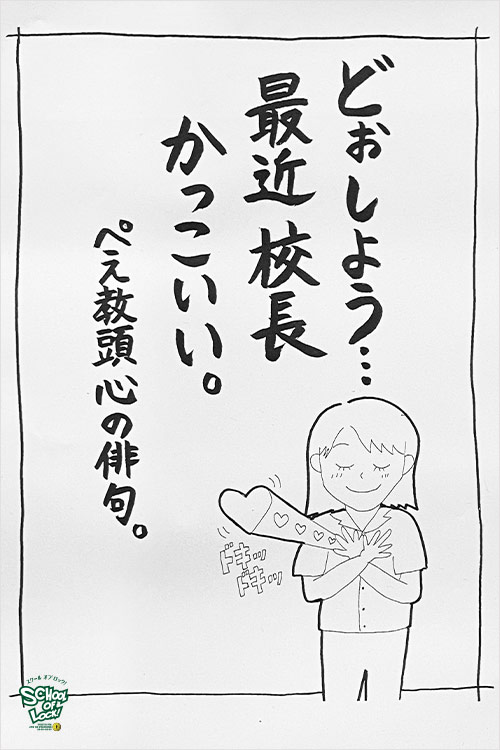 どぉしよう…
最近 校長
かっこいい。
ぺえ教頭心の俳句。
ドキッ
ドキッ
スクール オブ ロック!
SCHOOL
OF
LOCK!